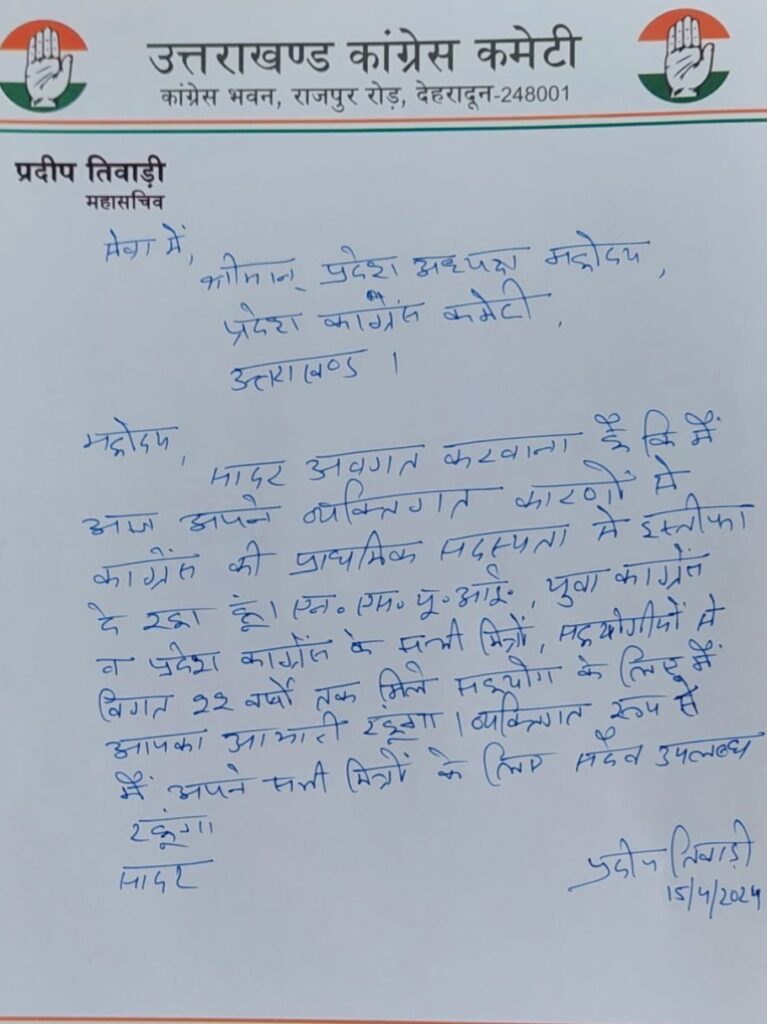 उत्तराखण्ड कांग्रेस कमेटी
कांग्रेस भवन, राजपुर रोड़, देहरादून-248001
प्रदीप तिवाड़ी
महासचिव
सेवा में,
श्रीमान् प्रदेश अध्यक्ष महोदय,
प्रदेश कांग्रेस कमेटी,
उत्तराखण्ड ।
महोदय,
सादर अवगत करवाना है कि मैं
आज अपने व्यक्तिगत कारणों से
कांग्रेस की प्राथमिक सदस्यता से इस्तीफा
दे रहा हूं। एन. एस. यू. आई., युवा कांग्रेस
व प्रदेश कांग्रेस के सभी मित्रों, सहयोगीयों से
विगत २२ वर्षों तक मिले सहयोग के लिए मैं
आपका आभारी रहूंगा । व्यक्तिगत रूप से
मैं अपने सभी मित्रों के लिए सदैव उपलब्ध
रहूंगा
सादर
प्रदीप तिवाड़ी
15/4/2024